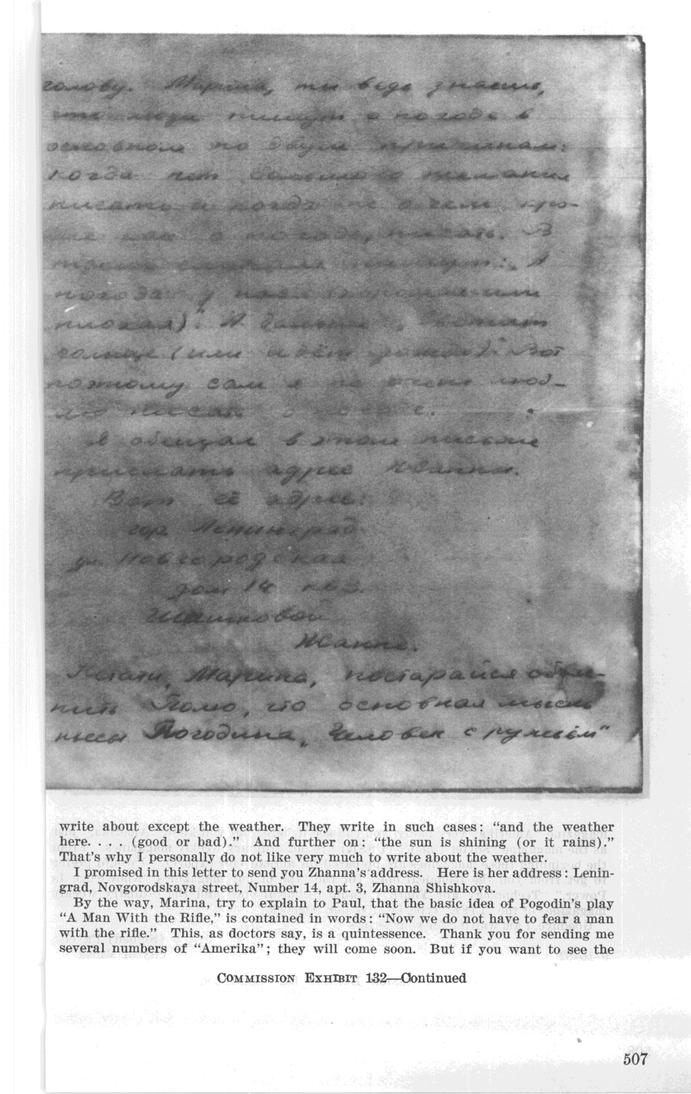 голову. Марина, ты ведь знаешь,
что люди пишут о погоде в
основном по двум причинам:
когда нет большого желания
писать и когда не о чем,
как о погоде, писать. В
пишут: "А
погода у нас (хорошая или
плохая)". А дальше: "светит
солнце (или идёт дождь)". Вот
поэтому сам я не очень люб-
лю писать о погоде.
Я обещал в этом письме
прислать адрес Жанны.
Вот её адрес:
гор Ленинград
ул. Новгородская
дом 14 кв 3.
Шишковой
Жанне.
Кстати, Марина, постарайся объяс-
нить Полю, что основная мысль
пьесы Погодина „Человек с ружьём"
write about except the weather. They write in such cases: “and the weather
here. . . . (good or bad).” And further on: “the sun is shining (or it rains).”
That's why I personally do not like very much to write about the weather.
I promised in this letter to send you Zhanna's address. Here is her address: Lenin-
grad, Novgorodskaya street, Number 14, apt. 3, Zhanna Shishkova.
By the way, Marina, try to explain to Paul, that the basic idea of Pogodin's play
“A Man With the Rifle,” is contained in words: “Now we do not have to fear a man
with the rifle.” This, as doctors say, is a quintessence. Thank you for sending me
several numbers of “Amerika”; they will come soon. But if you want to see the
COMMISSION EXHIBIT 132—Continued
507